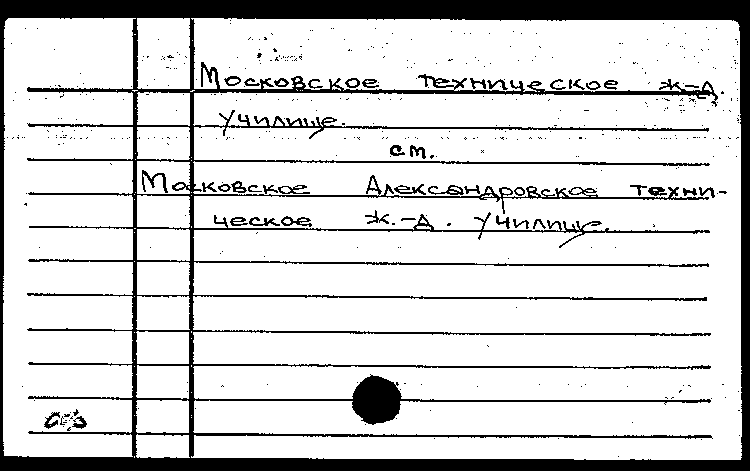 Московское техническое ж-д.
училище.
ст.
Московское Александровское техни-
ческое ж.-д. училище.